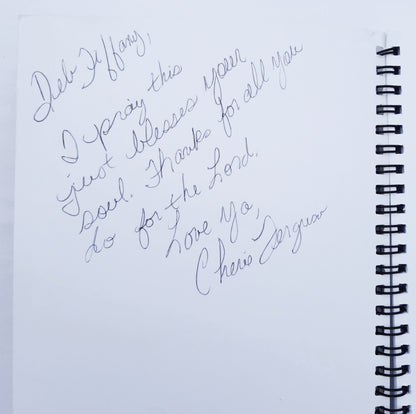 Deb Tiffany,
I pray this
just blesses your
soul. Thanks for all you
do for the Lord.
Love Ya,
Cheris Ferguson